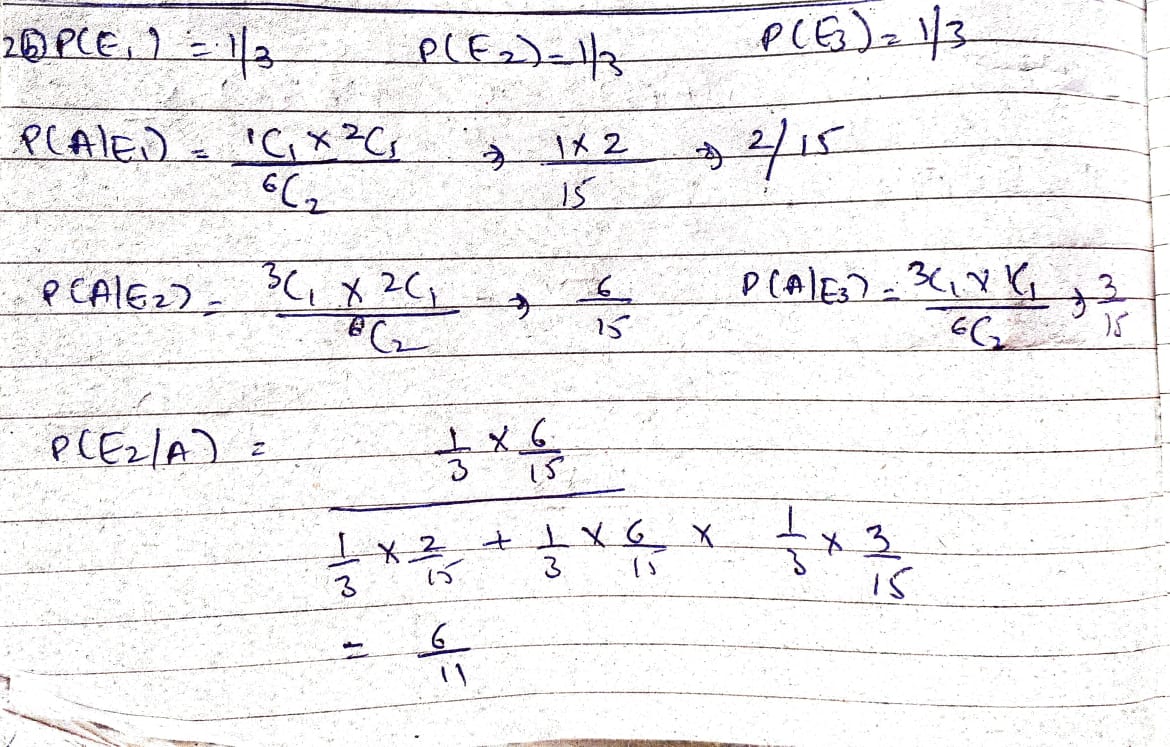 26) P(E₁) = 1/3 P(E₂) = 1/3 P(E₃) = 1/3
P(A|E₁) = ¹C₁ × ²C₁ / ⁶C₂ ⇒ 1×2 / 15 ⇒ 2/15
P(A|E₂) = ³C₁ × ²C₁ / ⁶C₂ ⇒ 6/15 P(A|E₃) = ³C₁ × ¹C₁ / ⁶C₂ ⇒ 3/15
P(E₂/A) = 1/3 × 6/15
1/3 × 2/15 + 1/3 × 6/15 × 1/3 × 3/15
= 6/11